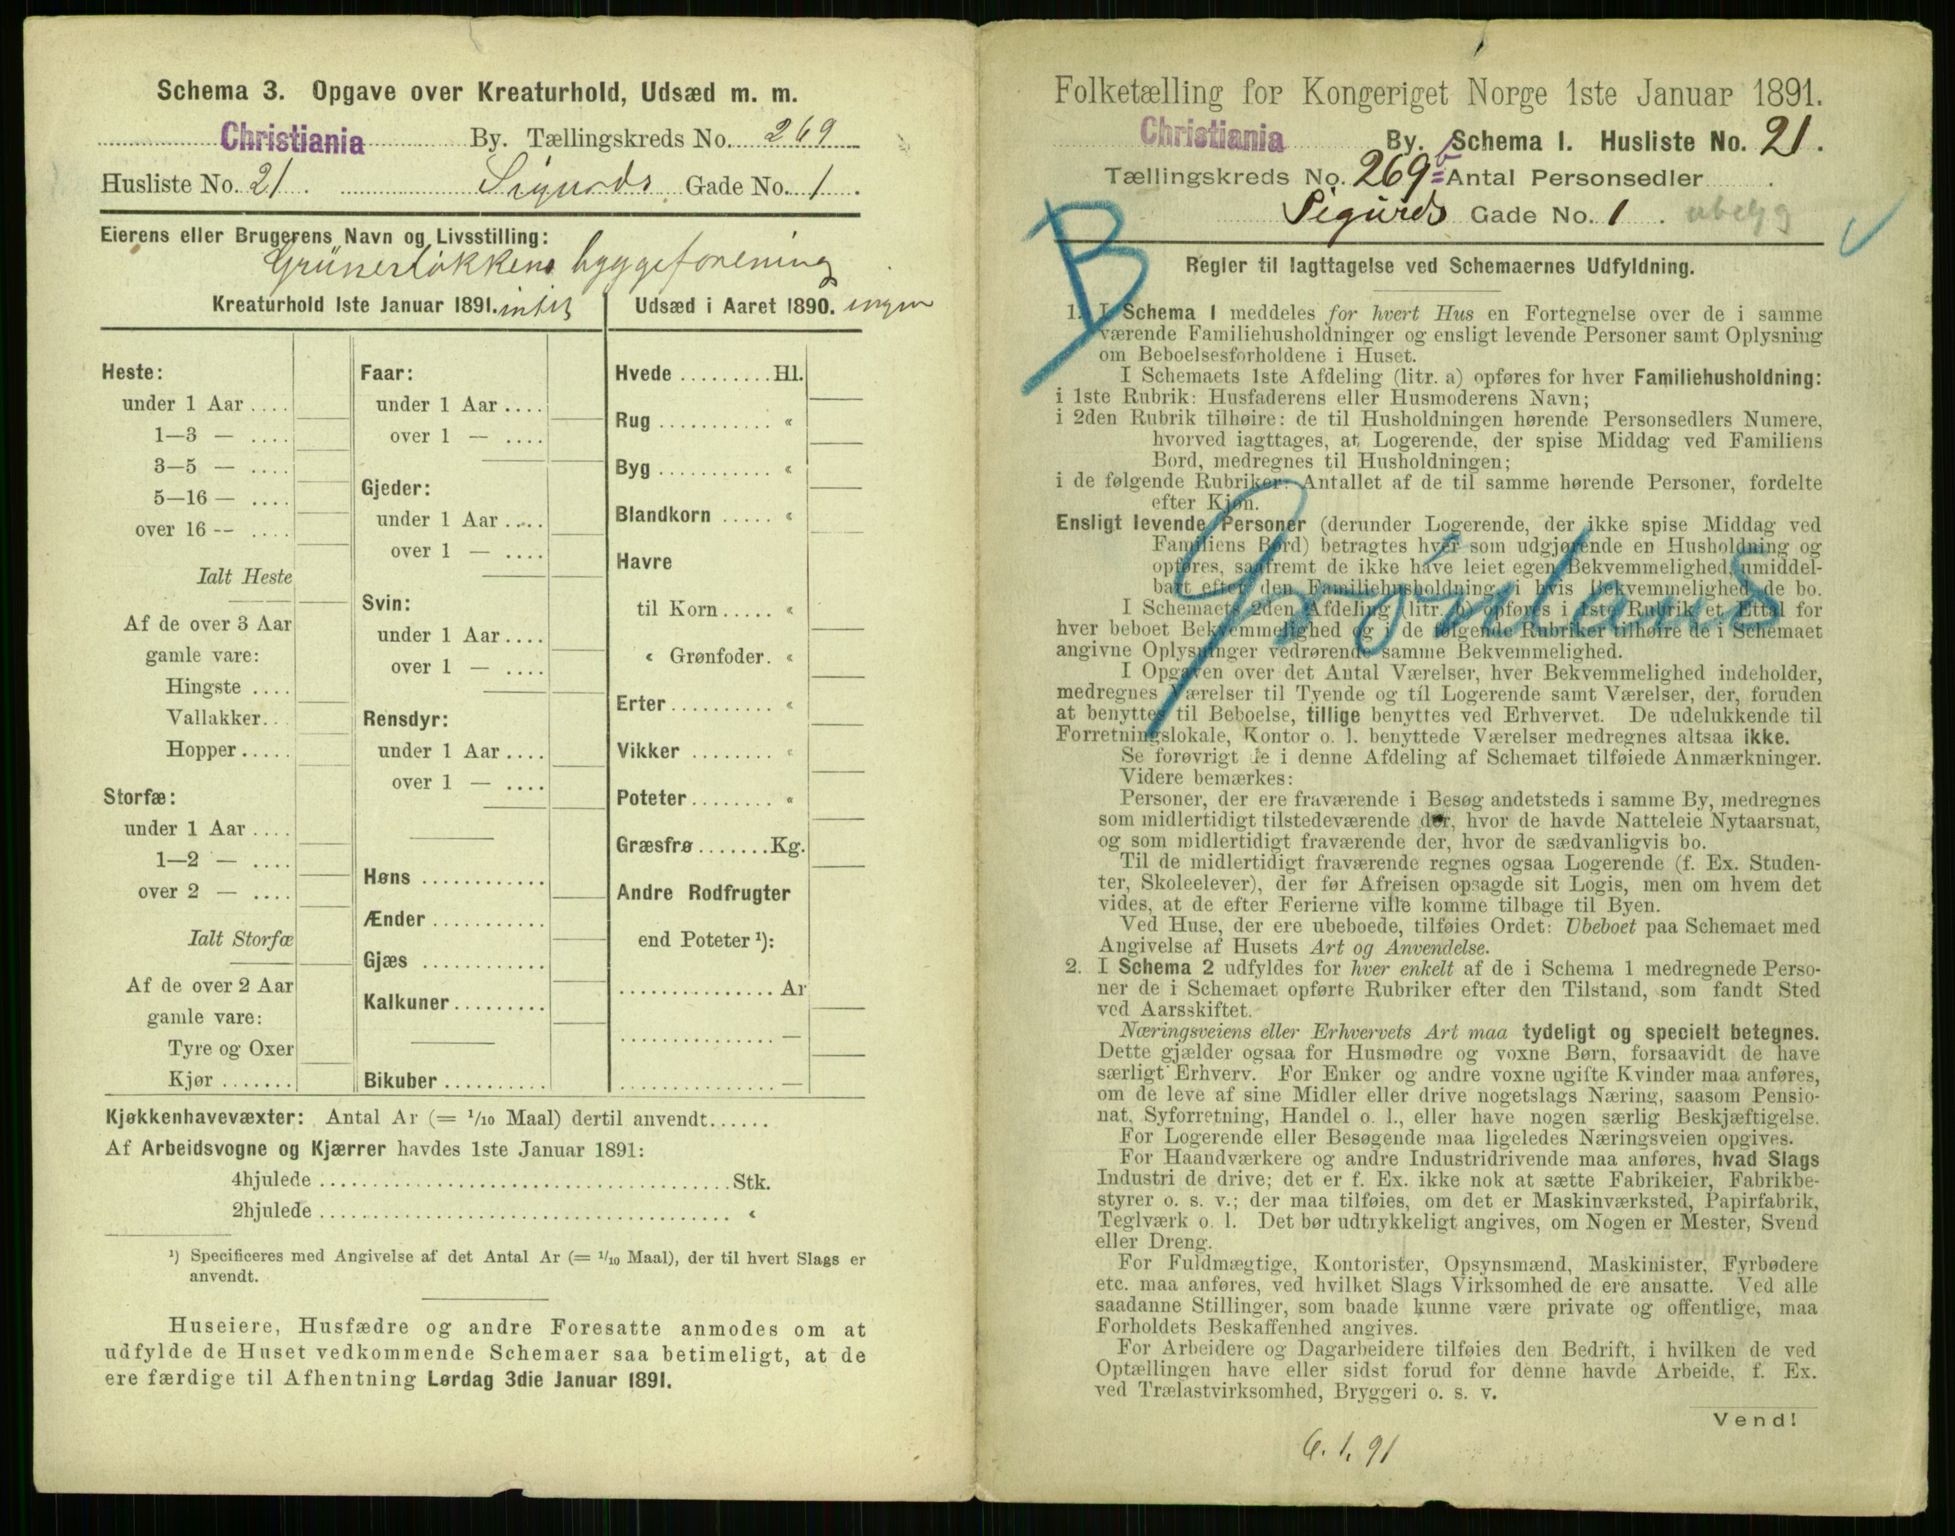 Schema 3. Opgave over Kreaturhold, Udsæd m. m.
Christiania By. Tællingskreds No. 269
Husliste No. 21. Sigurds Gade No. 1.
Eierens eller Brugerens Navn og Livsstilling:
Grünerløkkens byggeforening
Kreaturhold 1ste Januar 1891. intet
Heste:
under 1 Aar ....
1—3 — ....
3—5 — ....
5—16 — ....
over 16 — ....
Ialt Heste
Af de over 3 Aar
gamle vare:
Hingste ....
Vallakker...
Hopper.....
Storfæ:
under 1 Aar ....
1—2 — ....
over 2 — ....
Ialt Storfæ
Af de over 2 Aar
gamle vare:
Tyre og Oxer
Kjør .......
Faar:
under 1 Aar ....
over 1 — ....
Gjeder:
under 1 Aar ....
over 1 — ....
Svin:
under 1 Aar ....
over 1 — ....
Rensdyr:
under 1 Aar ....
over 1 — ....
Høns ............
Ænder ...........
Gjæs ............
Kalkuner.........
Bikuber ..........
Udsæd i Aaret 1890. ingen
Hvede .........Hl.
Rug ........... «
Byg ........... «
Blandkorn ..... «
Havre
til Korn ..... «
« Grønfoder. «
Erter.......... «
Vikker ........ «
Poteter........ «
Græsfrø .......Kg.
Andre Rodfrugter
end Poteter ¹):
............... Ar
............... —
............... —
Kjøkkenhavevæxter: Antal Ar (= 1/10 Maal) dertil anvendt......
Af Arbeidsvogne og Kjærrer havdes 1ste Januar 1891:
4hjulede ....................................Stk.
2hjulede .................................... «
¹) Specificeres med Angivelse af det Antal Ar (= 1/10 Maal), der til hvert Slags er
anvendt.
Huseiere, Husfædre og andre Foresatte anmodes om at
udfylde de Huset vedkommende Schemaer saa betimeligt, at de
ere færdige til Afhentning Lørdag 3die Januar 1891.
Folketælling for Kongeriget Norge 1ste Januar 1891.
Christiania By. Schema I. Husliste No. 21.
Tællingskreds No. 269b Antal Personsedler .
Sigurds Gade No. 1. ubelyg
B
Regler til Iagttagelse ved Schemaernes Udfyldning.
1. I Schema I meddeles for hvert Hus en Fortegnelse over de i samme
værende Familiehusholdninger og ensligt levende Personer samt Oplysning
om Beboelsesforholdene i Huset.
I Schemaets 1ste Afdeling (litr. a) opføres for hver Familiehusholdning:
i 1ste Rubrik: Husfaderens eller Husmoderens Navn;
i 2den Rubrik tilhøire: de til Husholdningen hørende Personsedlers Numere,
hvorved iagttages, at Logerende, der spise Middag ved Familiens
Bord, medregnes til Husholdningen;
i de følgende Rubriker: Antallet af de til samme hørende Personer, fordelte
efter Kjøn.
Ensligt levende Personer (derunder Logerende, der ikke spise Middag ved
Familiens Bord) betragtes hver som udgjørende en Husholdning og
opføres, saafremt de ikke have leiet egen Bekvemmelighed, umiddel-
bart efter den Familiehusholdning, i hvis Bekvemmelighed de bo.
I Schemaets 2den Afdeling (litr. b) opføres i 1ste Rubrik et Ettal for
hver beboet Bekvemmelighed og i de følgende Rubriker tilhøire de i Schemaet
angivne Oplysninger vedrørende samme Bekvemmelighed.
I Opgaven over det Antal Værelser, hver Bekvemmelighed indeholder,
medregnes Værelser til Tyende og til Logerende samt Værelser, der, foruden
at benyttes til Beboelse, tillige benyttes ved Erhvervet. De udelukkende til
Forretningslokale, Kontor o. l. benyttede Værelser medregnes altsaa ikke.
Se forøvrigt de i denne Afdeling af Schemaet tilføiede Anmærkninger.
Videre bemærkes:
Personer, der ere fraværende i Besøg andetsteds i samme By, medregnes
som midlertidigt tilstedeværende der, hvor de havde Natteleie Nytaarsnat,
og som midlertidigt fraværende der, hvor de sædvanligvis bo.
Til de midlertidigt fraværende regnes ogsaa Logerende (f. Ex. Studen-
ter, Skoleelever), der før Afreisen opsagde sit Logis, men om hvem det
vides, at de efter Ferierne ville komme tilbage til Byen.
Ved Huse, der ere ubeboede, tilføies Ordet: Ubeboet paa Schemaet med
Angivelse af Husets Art og Anvendelse.
2. I Schema 2 udfyldes for hver enkelt af de i Schema 1 medregnede Perso-
ner de i Schemaet opførte Rubriker efter den Tilstand, som fandt Sted
ved Aarsskiftet.
Næringsveiens eller Erhvervets Art maa tydeligt og specielt betegnes.
Dette gjælder ogsaa for Husmødre og voxne Børn, forsaavidt de have
særligt Erhverv. For Enker og andre voxne ugifte Kvinder maa anføres,
om de leve af sine Midler eller drive nogetslags Næring, saasom Pensio-
nat, Syforretning, Handel o. l., eller have nogen særlig Beskjæftigelse.
For Logerende eller Besøgende maa ligeledes Næringsveien opgives.
For Haandværkere og andre Industridrivende maa anføres, hvad Slags
Industri de drive; det er f. Ex. ikke nok at sætte Fabrikeier, Fabrikbe-
styrer o. s. v.; der maa tilføies, om det er Maskinværksted, Papirfabrik,
Teglværk o. l. Det bør udtrykkeligt angives, om Nogen er Mester, Svend
eller Dreng.
For Fuldmægtige, Kontorister, Opsynsmænd, Maskinister, Fyrbødere
etc. maa anføres, ved hvilket Slags Virksomhed de ere ansatte. Ved alle
saadanne Stillinger, som baade kunne være private og offentlige, maa
Forholdets Beskaffenhed angives.
For Arbeidere og Dagarbeidere tilføies den Bedrift, i hvilken de ved
Optællingen have eller sidst forud for denne havde Arbeide, f. Ex.
ved Trælastvirksomhed, Bryggeri o. s. v.
Vend!
6.1.91